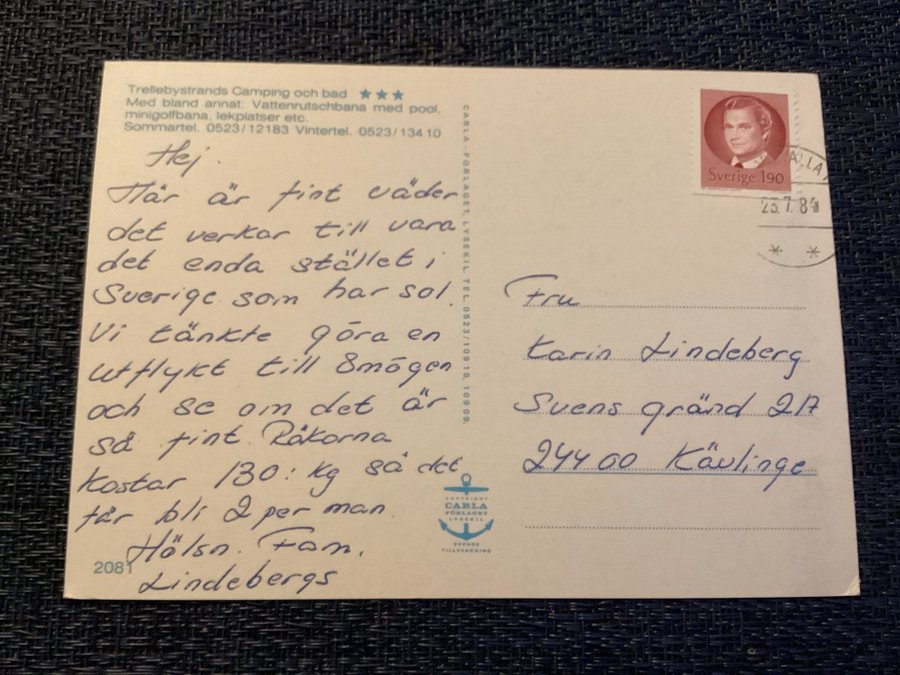 Trellebystrands Camping och bad ★★★
Med bland annat: Vattenrutschbana med pool,
minigolfbana, lekplatser etc.
Sommartel. 0523/12183 Vintertel. 0523/134 10
Hej.
Här är fint väder
det verkar till vara
det enda stället i
Sverige som har sol.
Vi tänkte göra en
utflykt till Smögen
och se om det är
så fint. Räkorna
kostar 130: kg så det
får bli 2 per man.
Hälsn. Fam.
Lindebergs
2081
CARLA-FÖRLAGET, LYSEKIL. TEL. 0523/109 19, 109 09.
COPYRIGHT
CARLA
FÖRLAGET
LYSEKIL
SVENSK
TILLVERKNING
Sverige 190
23.7.84
Fru
Karin Lindeberg
Svens gränd 2A
244 00 Kävlinge